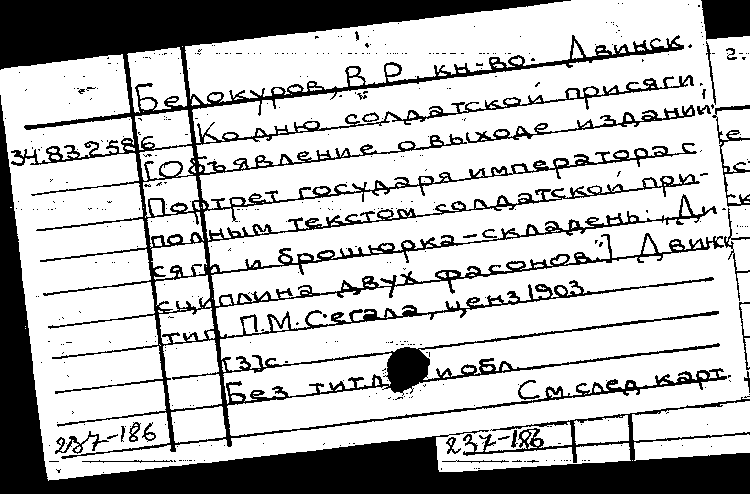 Белокуров, В. Р., кн-во. Двинск.
34.83.2586 Ко дню солдатской присяги.
[Объявление о выходе изданий:
Портрет государя императора с
полным текстом солдатской при-
сяги и брошюрка-складень: „Ди
сциплина двух фасонов".] Двинск,
тип. П.М. Сегала, ценз 1903.
[3]с.
Без титл. и обл.
См. след. карт.
237-186
г.
237-186